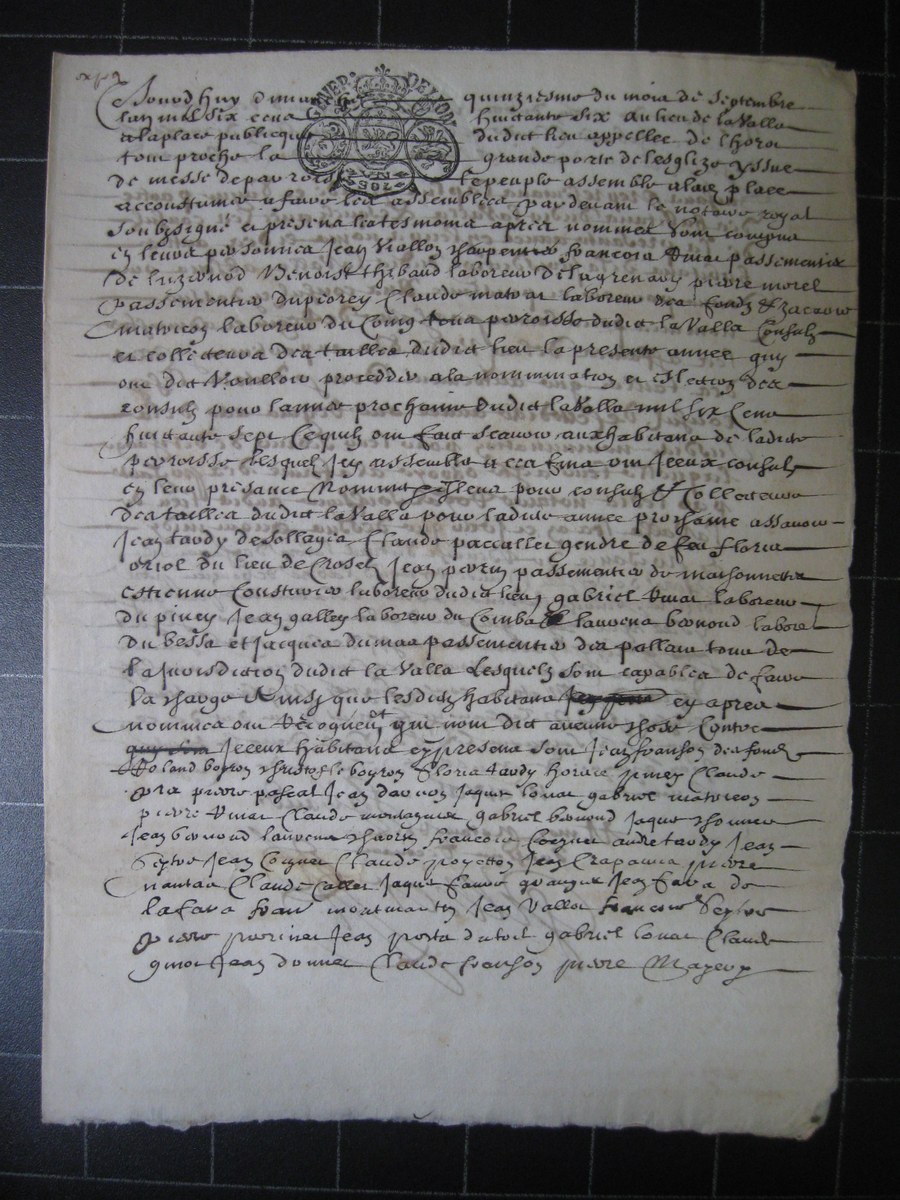 exp
GENER DE LYON
Jourd huy dimanche quinziesme du mois de septembre
lan mil six cens huictante six au lieu de la Valla
a la place publicque dudict lieu appellee de lhorm
tout proche la grande porte de lesglize yssue
de messe de parrois le peuple assemble a la place
accoustumee a faire les assemblees par devant le notaire royal
soubzsigné et presens les tesmoins apres nommes sont compus
en leurs personnes Jean Viallon charpentier francois Vivar passementier
de luzernod Benoist thibaud laboreur de la grenary pierre morel
passementier du pcorey Claude matvat laboreur des fonds & zacarie
matricon laboreur du Coing tous perroisse dudict la Valla Consulz
et collecteurs des tailles dudict lieu la presente annee quy
ont dict Voulloir proceddée a la nommination et eslection des
consulz pour lannee prochaine dudict la Valla mil six cens
huictante sept Lequelz ont faict scavoir aux habitans de ladite
perroisse lesquelz Jcy assemblé a ces fins ont Jceux consulz
en leur presance Nommé pour consulz & Collecteurs
des tailles dudict la Valla pour ladite annee prochaine assavoir
Jean tardy de sollagies Claude paccallet gendre de feu floris
oriol du lieu de Crosez Jean perrin passementier de maisonnettes
estienne Cousturier laboreur dudict lieu gabriel Vivat laboreur
du piney Jean galley laboreur du Combat laurens bernond labore
du bessa et Jacques dumas passementier des pallais tous de
la Jurisdiction dudict la Valla Lesquelz sont capables de faire
la charge Ainsy que lesditz habitans cy apres
nommes ont Recogneu et quy nont dict aucune chose Contre
quy sont Jceux habitans cy presens sont Jean franson des fondz
Rolland boyron christofle boyron floris tardy horace piney Claude
pra pierre pascal Jean davron Jaque louat gabriel matricon
pierre Vivat Claude montagnier gabriel bernond Jaque thonnier
Jean bernond laurens thorin francois Cognet andre tardy Jean
Seytre Jean Cognet Claude poyetton Jean Crapanne pierre
nantas Claude Callet Jaque faure grangier Jean fara de
la fara fran montmartin Jean Vallet francois Seytre
pierre perrinet Jean porta dutoil gabriel louat Claude
gmot Jean donnet Claude franson pierre Mayeux